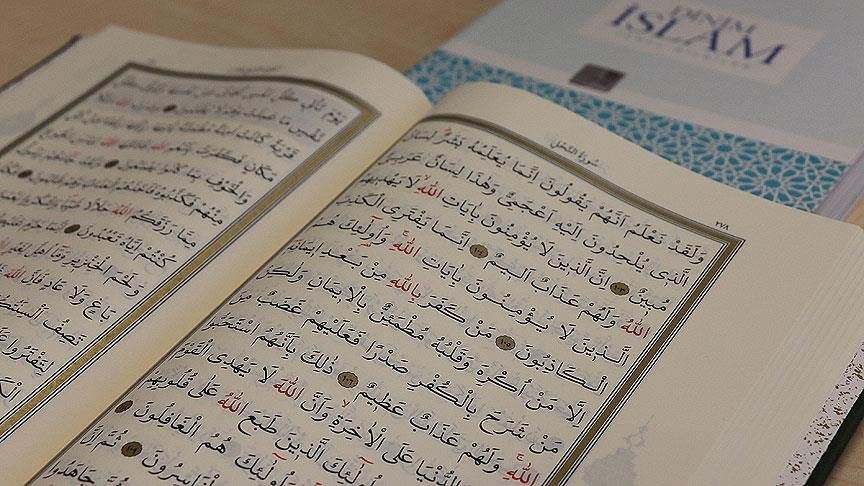 DİNİM
İSLAM
سُورَةُ النَّحْلِ
٢٧٨
وَلَقَدْ نَعْلَمُ اَنَّهُمْ يَقُولُونَ اِنَّمَا يُعَلِّمُهُ بَشَرٌ لِسَانُ
الَّذِي يُلْحِدُونَ اِلَيْهِ اَعْجَمِيٌّ وَهٰذَا لِسَانٌ عَرَبِيٌّ
مُبِينٌ ١٠٣ اِنَّ الَّذِينَ لَا يُؤْمِنُونَ بِاٰيَاتِ اللّٰهِ لَا يَهْدِيهِمُ
اللّٰهُ وَلَهُمْ عَذَابٌ اَلِيمٌ ١٠٤ اِنَّمَا يَفْتَرِي الْكَذِبَ
الَّذِينَ لَا يُؤْمِنُونَ بِاٰيَاتِ اللّٰهِ وَاُولٰٓئِكَ هُمُ
الْكَاذِبُونَ ١٠٥ مَنْ كَفَرَ بِاللّٰهِ مِنْ بَعْدِ اِيمَانِهِ
اِلَّا مَنْ اُكْرِهَ وَقَلْبُهُ مُطْمَئِنٌّ بِالْاِيمَانِ وَلٰكِنْ
مَنْ شَرَحَ بِالْكُفْرِ صَدْرًا فَعَلَيْهِمْ غَضَبٌ مِنَ
اللّٰهِ وَلَهُمْ عَذَابٌ عَظِيمٌ ١٠٦ ذٰلِكَ بِاَنَّهُمُ اسْتَحَبُّوا
الدُّنْيَا عَلَى الْاٰخِرَةِ وَاَنَّ اللّٰهَ لَا يَهْدِي الْقَوْمَ
اُولٰٓئِكَ الَّذِينَ طَبَعَ اللّٰهُ عَلٰى قُلُوبِهِمْ
وَاُولٰٓئِكَ هُمُ الْغَافِلُونَ
ثُمَّ اِنَّ
جَاهَدُوا
يَوْمَ تَأْتِي كُلُّ نَفْسٍ
نَفْسٍ مَا عَمِلَتْ وَهُمْ لَا يُظْلَمُونَ
قَرْيَةً كَانَتْ اٰمِنَةً
مَكَانٍ فَكَفَرَتْ بِاَنْعُمِ اللّٰهِ
وَالْخَوْفِ بِمَا كَانُوا يَصْنَعُونَ
مِنْهُمْ فَكَذَّبُوهُ فَاَخَذَهُمُ
مِمَّا رَزَقَكُمُ اللّٰهُ حَلَالًا طَيِّبًا
كُنْتُمْ اِيَّاهُ تَعْبُدُونَ
وَلَحْمَ الْخِنْزِيرِ وَمَا اُهِلَّ لِغَيْرِ
بَاغٍ وَلَا عَادٍ فَاِنَّ اللّٰهَ
تَصِفُ اَلْسِنَتُكُمُ
لِتَفْتَرُوا